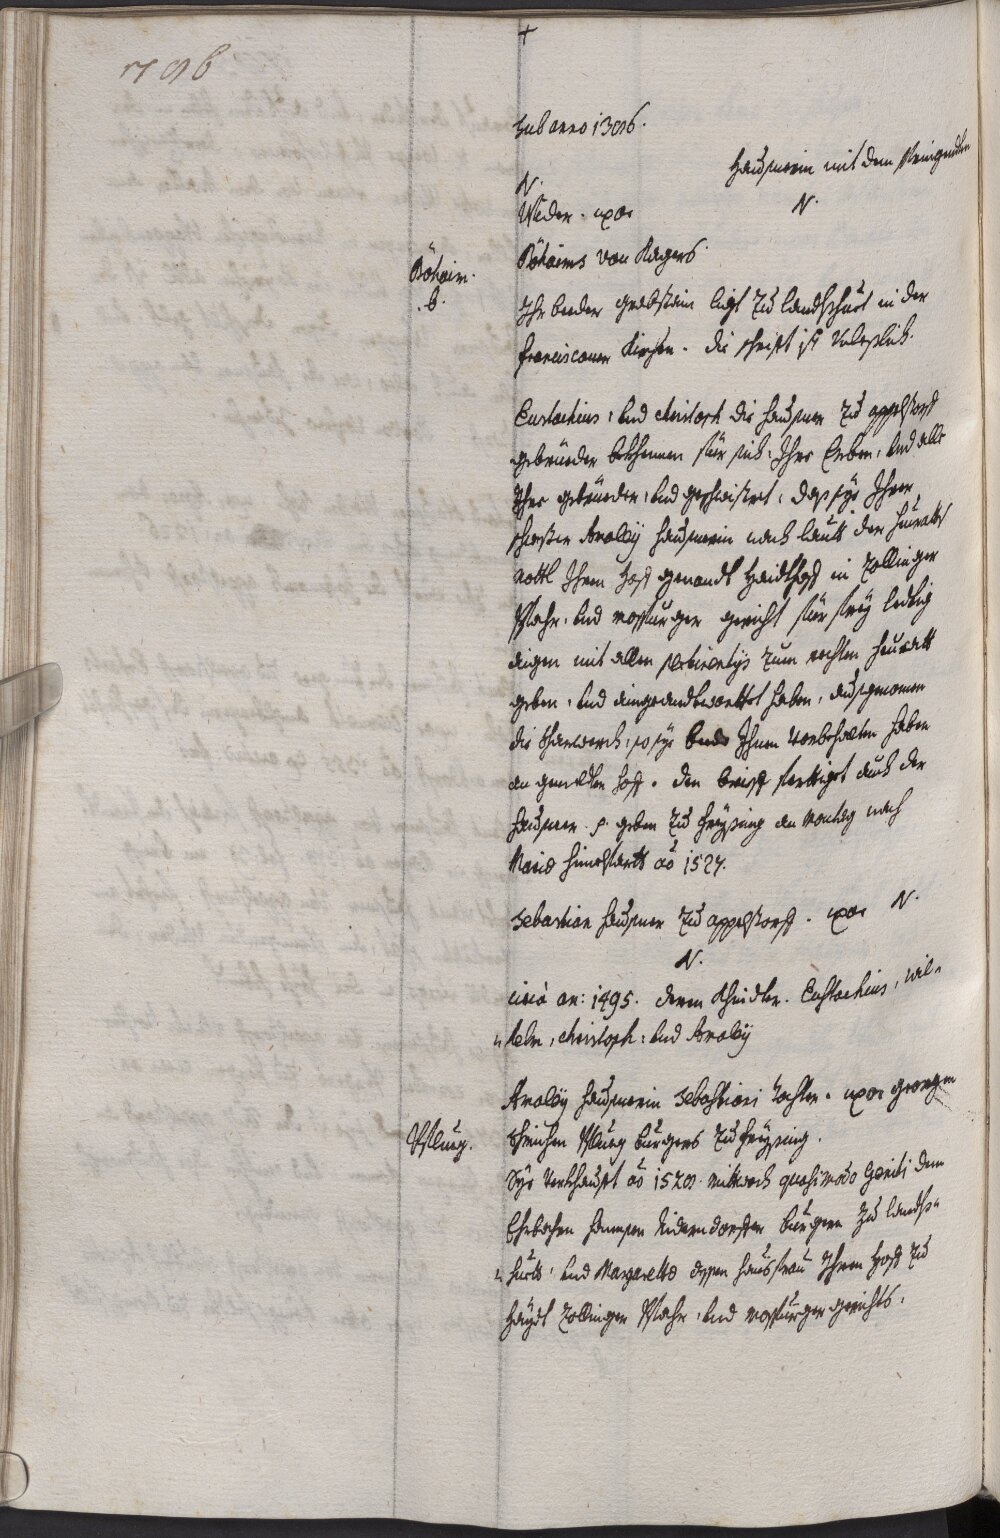 +
sub anno 1396.
Hausmerin mit dem
N.
N.
Weder. uxor
Böhaims von Kagers.
Böhaim.
.b.
Ihr beeder grabstain ligt zu Landtshuet in der
Franciscaner Kirchen. die schrifft ist Unleßlich.
Eustachius, und Christoph die Hausmer zu appestorff
gebrüeder bekhennen für sich, Ihre Erben, und alle
Ihre gebrüeder, und geschwistret, das sye Ihrer
schwester Araley Hausmerin nach lautt der heuraths
nottl Ihren Hoff genandt Haidthoff in Zollinger
Pfahr, und Mospurger gericht für frey ledtig
aigen mit allen pertinentys zum rechten heuratt
geben, und eingeandtworttet haben, ausgenomen
die scharwerch, so sye Ihnen vorbehalten haben
an gemelten hoff. den brieff ferttiget auch der
Hausmer p. geben zu Freysing an Montag nach
Mariæ himelfartt aõ 1527.
Sebastian Hausmer zu appestorff. uxor N.
N.
vixit an: 1495. deren Khinder. Eustachius, Wil-
helm, Christoph, und Araley
Araley Hausmerin Sebastiani tochter. uxor Georgen
Pflueg.
Pflueg burgers zu Freysing.
Sye verkhaufft aõ 1529. Mittwoch quasimodo Geniti dem
Ehrbahrn Hannsen Niderndorffer burgern zu Landts-
huett, und Margaretta dessen hausfrau Ihren Hoff zu
Haydt Zollinger Pfahr, und Mospurger gerichts.